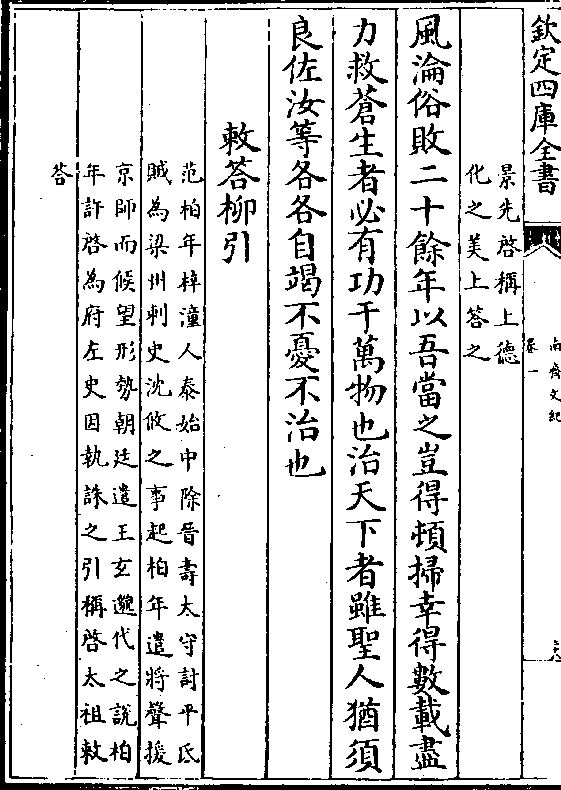 欽定四庫全書
南齊文紀
卷一
景先啓稱上德
化之美上答之
風淪俗敗二十餘年以吾當之豈得頓掃幸得數載盡
力救蒼生者必有功于萬物也治天下者雖聖人猶須
良佐汝等各各自竭不憂不治也
敕答柳引
范柏年梓潼人泰始中除晉壽太守討平氐
賊為梁州刺史沈攸之事起柏年遣將聲援
京師而候望形勢朝廷遣王玄邈代之說柏
年許啓為府左史因執誅之引稱啓太祖敕
答